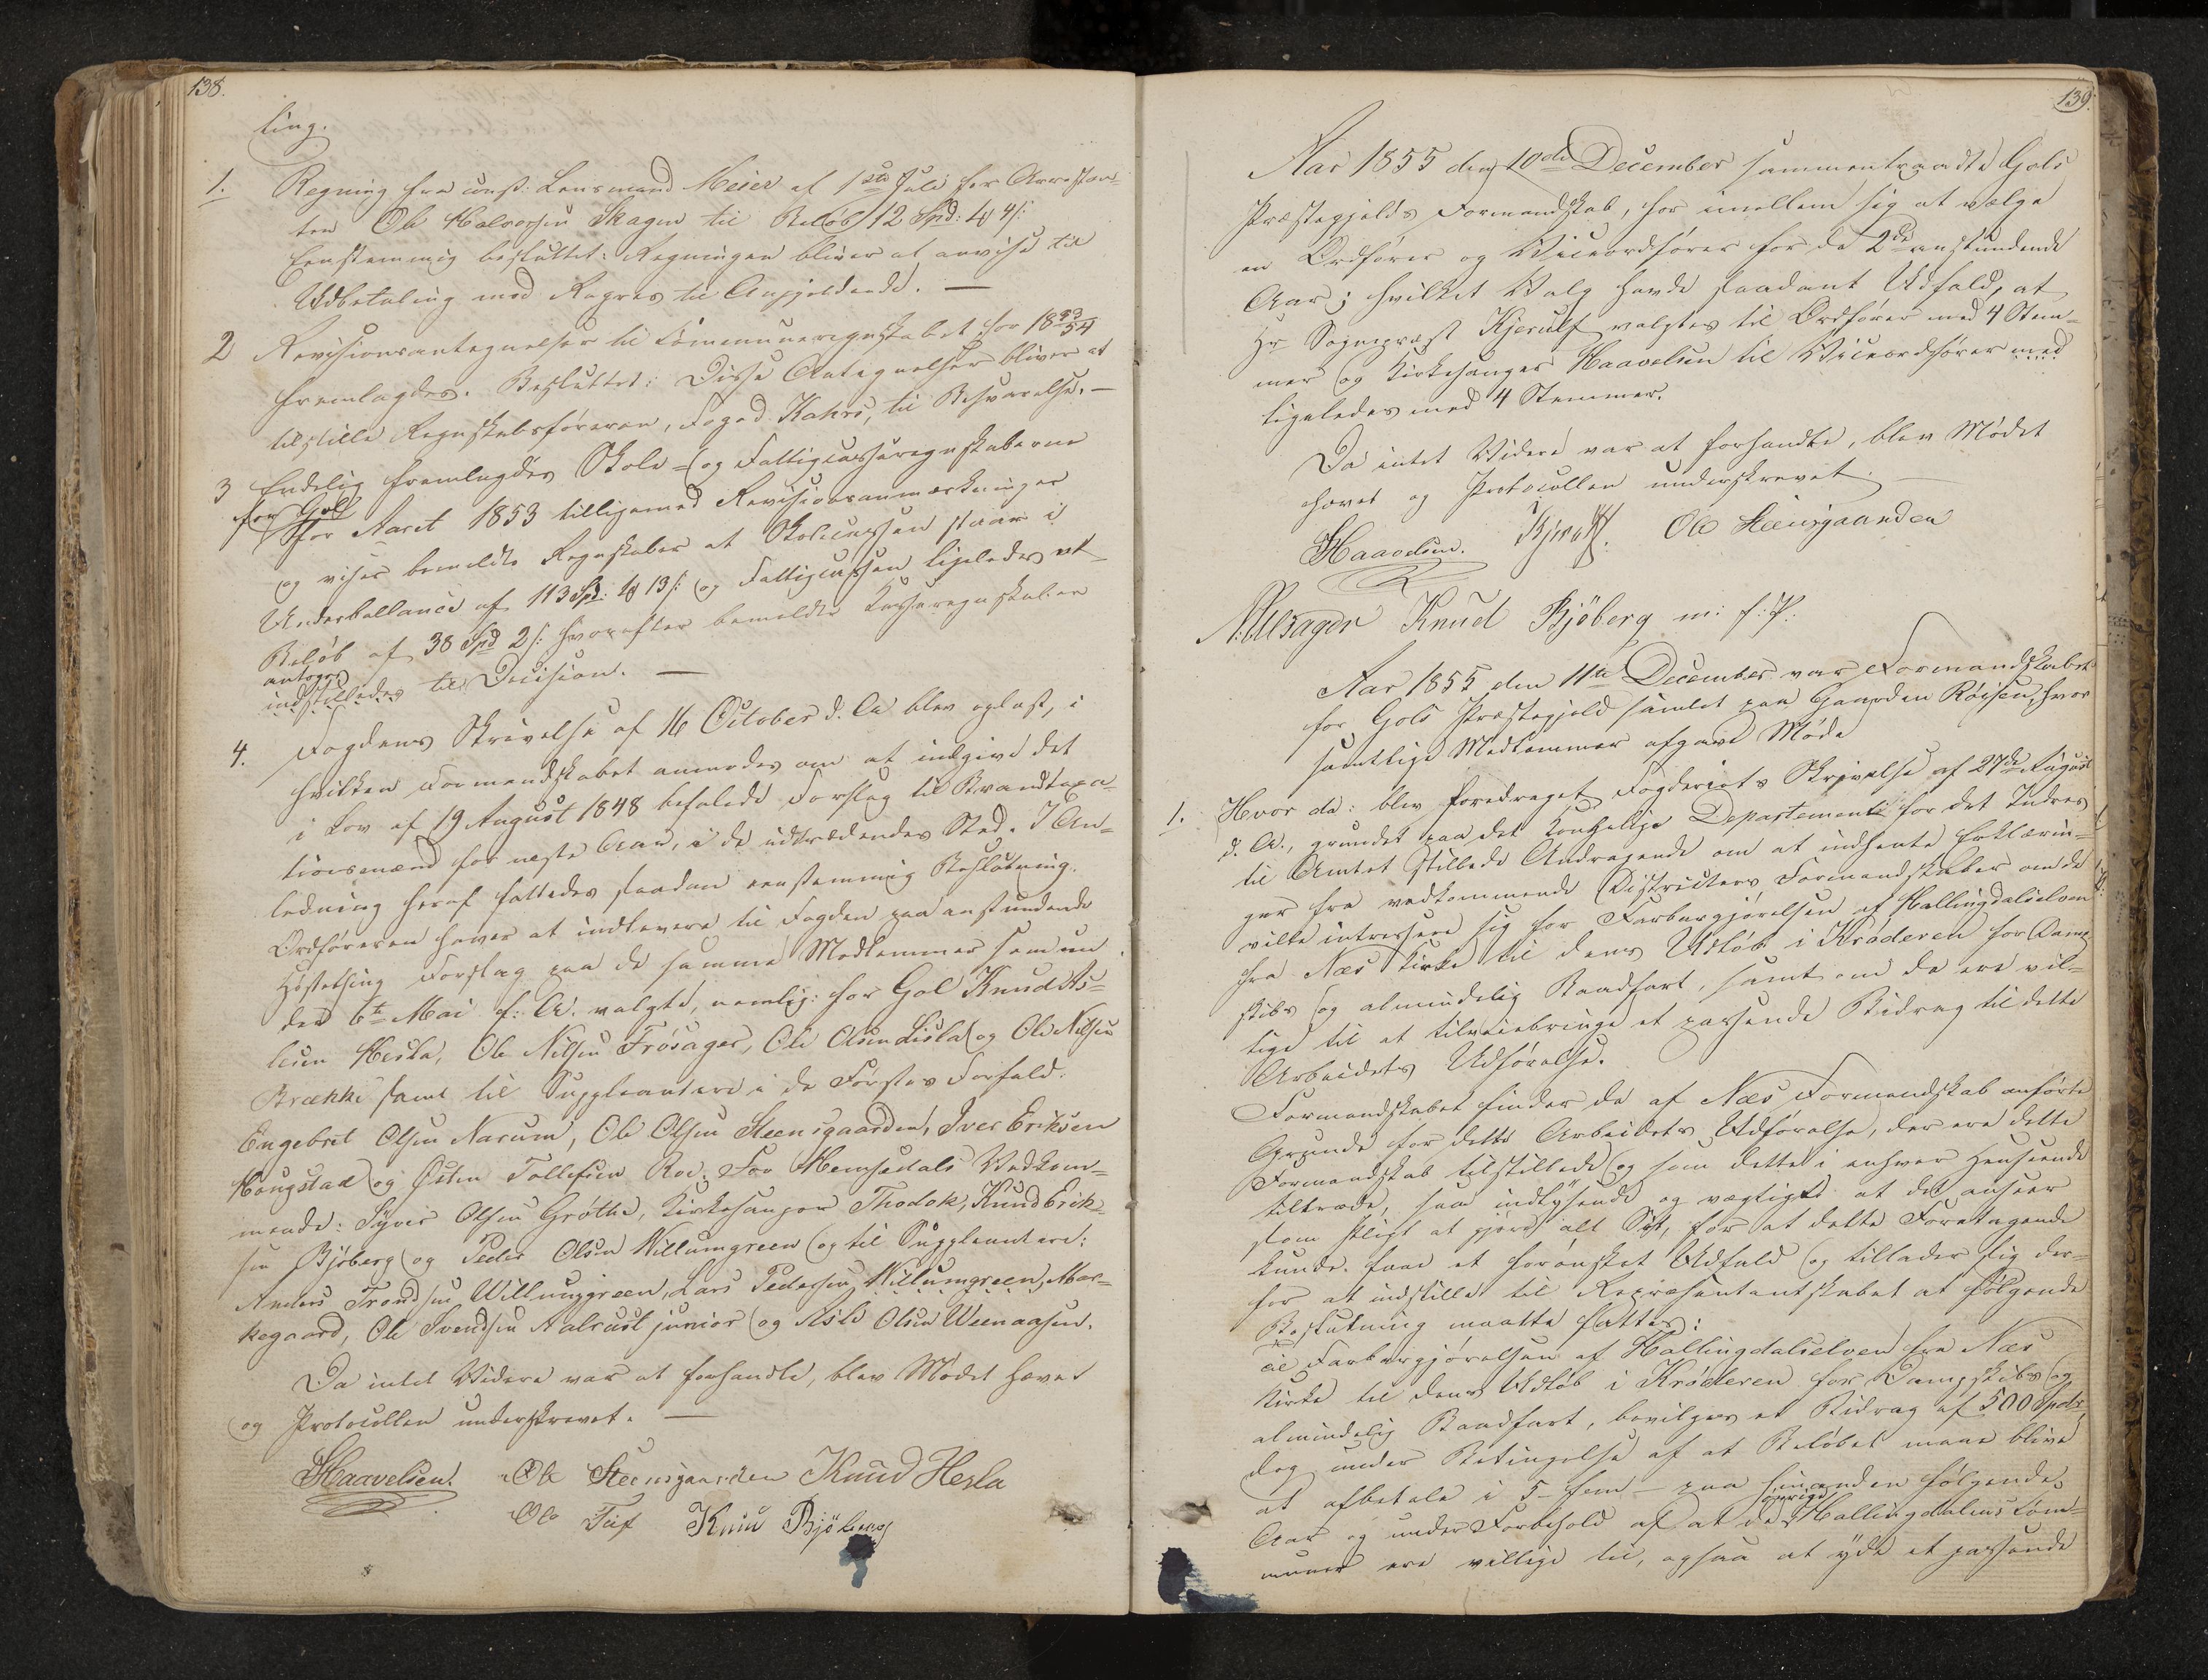 138.
ting.
1. Regning fra const: Lensmand Meier af 1ste Juli for Arrestan-
ten Ole Halvorsen Skagen til Beløb 12 Spd: 4 /:
Eenstemmig besluttet: Regningen bliver at anvise til
Udbetaling mod Regres til Angjeldende. —
2 Revisionsantegnelser til Kommuneregnskabet for 1853/54
fremlagdes. Besluttet: Disse Antegnelser bliver at
tilstille Regnskabsføreren, Foged Kahrs, til Besvarelse. —
3 Endelig fremlagdes Skole- og Fattigcasseregnskaberne
for Gol
for Aaret 1853 tilligemed Revisionsanmærkninger
og viser bemeldte Regnskaber at Skolecassen staar i
Underballance af 113 Spd: 13 /: og Fattigcassen ligeledes et
Beløb af 38 Spd 2 /: hvorefter bemeldte Casseregnskaber
antoges
indstilledes til Decision. —
4. Fogdens Skrivelse af 16 October d. A blev oplæst, i
hvilken Formandskabet anmodes om at indgive det
i Lov af 19 August 1848 befalede Forslag til Brandtaxa-
tionsmænd for næste Aar, i de udtrædendes Sted. I An-
ledning heraf fattedes saadan eenstemmig Beslutning.
Ordføreren haver at indlevere til Fogden paa anstundende
Høstething Forslag paa de samme Medlemmer som un-
der 6te Mai f: A. valgte, nemlig: for Gol Knud As-
lesen Hesla, Ole Nilsen Frøsager, Ole Olsen Lisla og Ole Nilsen
Brække samt til Suppleantere i de Førstes Forfald.
Engebret Olsen Narum, Ole Olsen Steensgaarden, Iver Eriksen
Hougstad og Østen Tollefsen Roe. For Hemsedals Vedkom-
mende: Syver Olsen Grøthe, Kirkesanger Thodok, Knud Erik-
sen Bjøberg og Peder Olsen Willumgreen og til Suppleantere:
Anders Trondsen Willumgreen, Lars Pedersen Willumgreen, Mar-
kegaard, Ole Svendsen Aalrust junior og Asle Olsen Ueenaasen.
Da intet Videre var at forhandle, blev Mødet hævet
og Protocollen underskrevet. —
Haavelsen. Ole Steensgaarden Knud Hesla
Ole Tuf Knu Bjöberg
139.
Aar 1855 den 10de December sammentraadte Gols
Præstegjelds Formandskab, for imellem sig at vælge
en Ordfører og Viceordfører for de 2de anstundende
Aar; hvilket Valg havde saadant Udfald, at
Hr Sognepræst Kjerulf valgtes til Ordfører med 4 Stem-
mer og Kirkesanger Haavelsen til Viceordfører med
ligeledes med 4 Stemmer.
Da intet Videre var at forhandle, blev Mødet
hævet og Protocollen underskrevet.
Haavelsen. Kjerulf. Ole Steensgaarden
Knud Bjöberg m: f: P:
Aar 1855 den 11te December var Formandskabet
for Gols Præstegjeld samlet paa Gaarden Røisen, hvor
samtlige Medlemmer afgave Møde
1. Hvor da: blev foredraget Fogderiets Skrivelse af 27de August
d. A., grundet paa det Kongelige Departement for det Indres
til Amtet stillede Andragende om at indhente Erklærin-
ger fra vedkommende Districters Formandskaber om de
ville intressere sig for Farbargjørelsen af Hallingdalselven
fra Næs Kirke til dens Udløb i Krøderen for Damp-
skibs og almindelig Baadfart, samt om de ere vil-
lige til at tilveiebringe et passende Bidrag til dette
Arbeidets Udførelse.
Formandskabet finder de af Næs Formandskab anførte
Grunde for dette Arbeidets Udførelse, der ere dette
Formandskab tilstillede og som dette i enhver Henseende
tiltræde, saa indlysende og vægtige at det anseer
som Pligt at gjøre alt Sit, for at dette Foretagende
kunde faae et forønsket Udfald og tillader sig der-
for at indstille til Repræsentantskabet at følgende
Beslutning maatte fattes:
Til Farbargjørelsen af Hallingdalselven fra Næs
Kirke til dens Udløb i Krøderen for Dampskibs og
almindelig Baadfart, bevilges et Bidrag af 500 Spdlr
dog under Betingelse af at Beløbet maae blive
at afbetale i 5 - fem - paa hinanden følgende
Aar og under Forbehold af at de øvrige Hallingdalens Com-
muner ere villige til, ogsaa at yde et passende